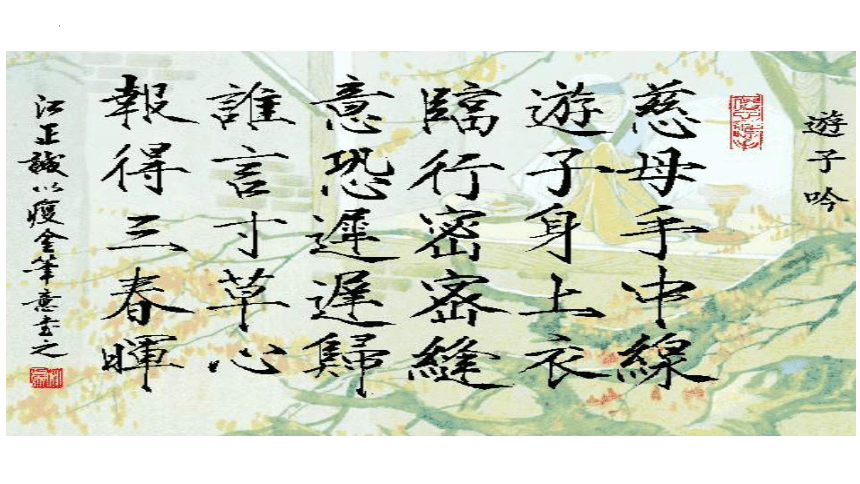 遊子吟
慈母手中線
遊子身上衣
臨行密密縫
意恐遲遲歸
誰言寸草心
報得三春暉
江正誠以瘦金筆意書之